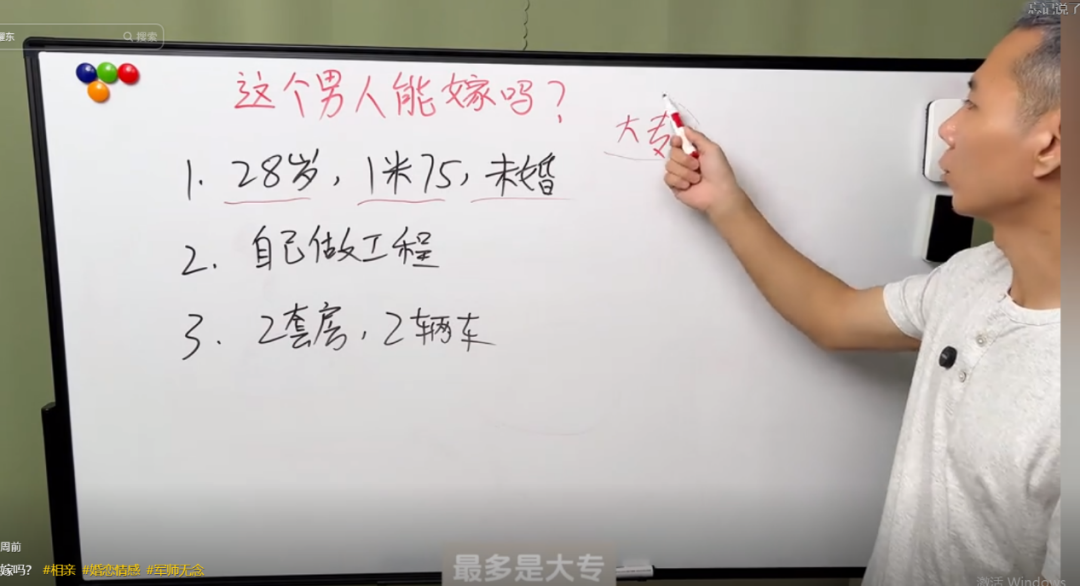 搜索
这个男人能嫁吗?
大专
1. 28岁, 1米75, 未婚
2. 自己做工程
3. 2套房, 2辆车
周前
嫁吗? #相亲 #婚恋情感 #军师无念
最多是大专
激活 Windows